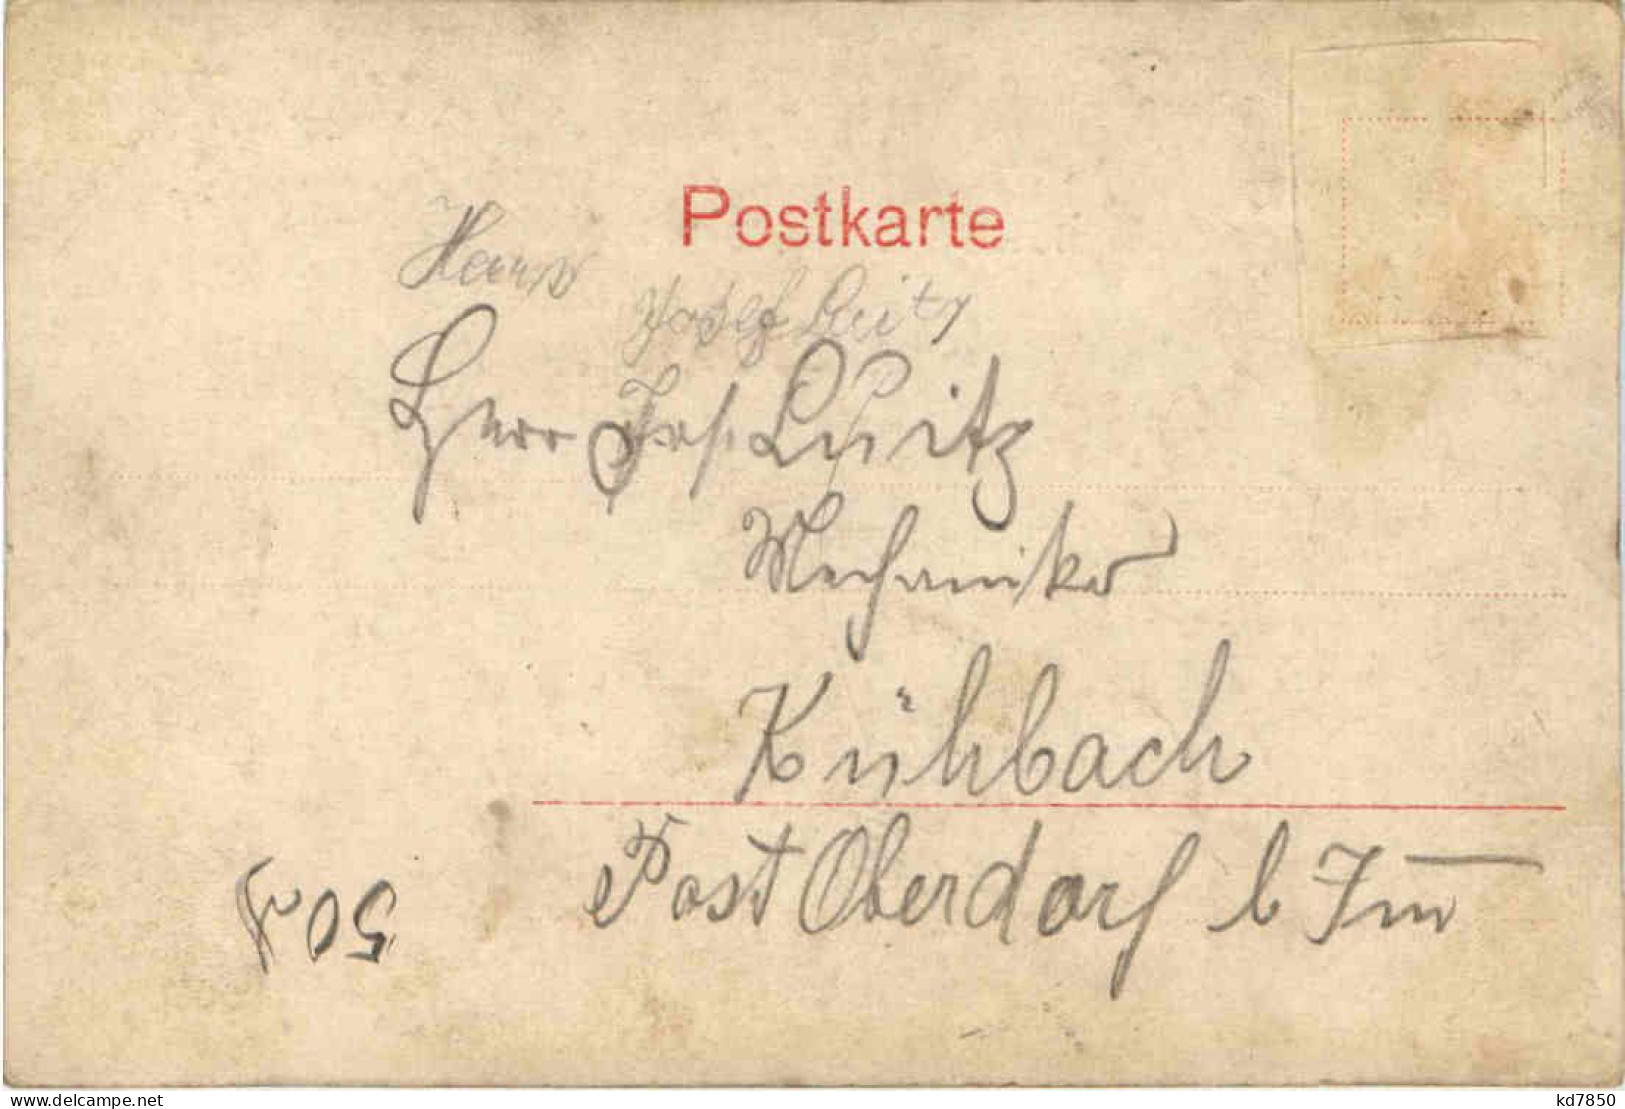 Postkarte
Hans
Josef Luitz
Herr Jos. Luitz
Mechaniker
Kühbach
Post Oberdorf b Imm
50
www.delcampe.net
kd7850